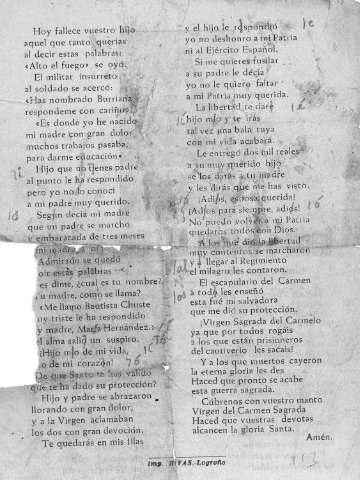 Hoy fallece vuestro hijo
aquel que tanto querías
al decir estas palabras:
«Alto el fuego» se oyó.
El militar insurrecto
al soldado se acercó:
«Has nombrado Burriana
respondeme con cariño»
«Es donde yo he nacido
mi madre con gran dolor,
muchos trabajos pasaba,
para darme educación»
Hijo que no tienes padre
al punto le ha respondido
pero yo no lo conocí
a mi padre muy querido.
Según decía mi madre
que un padre se marchó
y embarazada de tres meses
mi madre
Admirado se quedó
oir estas palabras
es dime, ¿cual es tu nombre?
u madre, como se llama?
«Me llamo Bautista Chuste
muy triste le ha respondido
y madre, María Hernández.»
el alma salió un suspiro.
¡Hijo mío de mi vida,
o de mi corazón!
¿De que Santo te has valido
que te ha dado su protección?
Hijo y padre se abrazaron
llorando con gran dolor,
y a la Virgen aclamaban
los dos con gran devoción.
Te quedarás en mis filas
y el hijo le respondió
yo no deshonro a mi Patria
ni al Ejército Español.
Si me quieres fusilar
a su padre le decía
yo no le quiero faltar
a mi Patria muy querida.
La libertad te daré
hijo mío y te irás
tal vez una bala tuya
con mi vida acabará.
Le entregó dos mil reales
a su muy querido hijo
se los darás a tu madre
y les dirás que me has visto.
¡Adiós, esposa querida!
¡Adiós para siempre, adiós!
No puedo volver a mi Patria
quedaros todos con Dios.
A los que dió la libertad
muy contentos se marcharon
y al llegar al Regimiento
el milagro les contaron.
El escapulario del Carmen
a todo les enseñó
esta fué mi salvadora
que me dió su protección.
¡Virgen Sagrada del Carmelo
ya que por todos rogáis
a los que están prisioneros
del cautiverio les sacáis!
Y a los muertos cayeron
la eterna gloria les des
Haced que pronto se acabe
esta guerra sagrada.
Cúbrenos con vuestro manto
Virgen del Carmen Sagrada
Haced que vuestras devotas
alcancen la gloria Santa.
Amén.
Imp. RIVAS.-Logroño